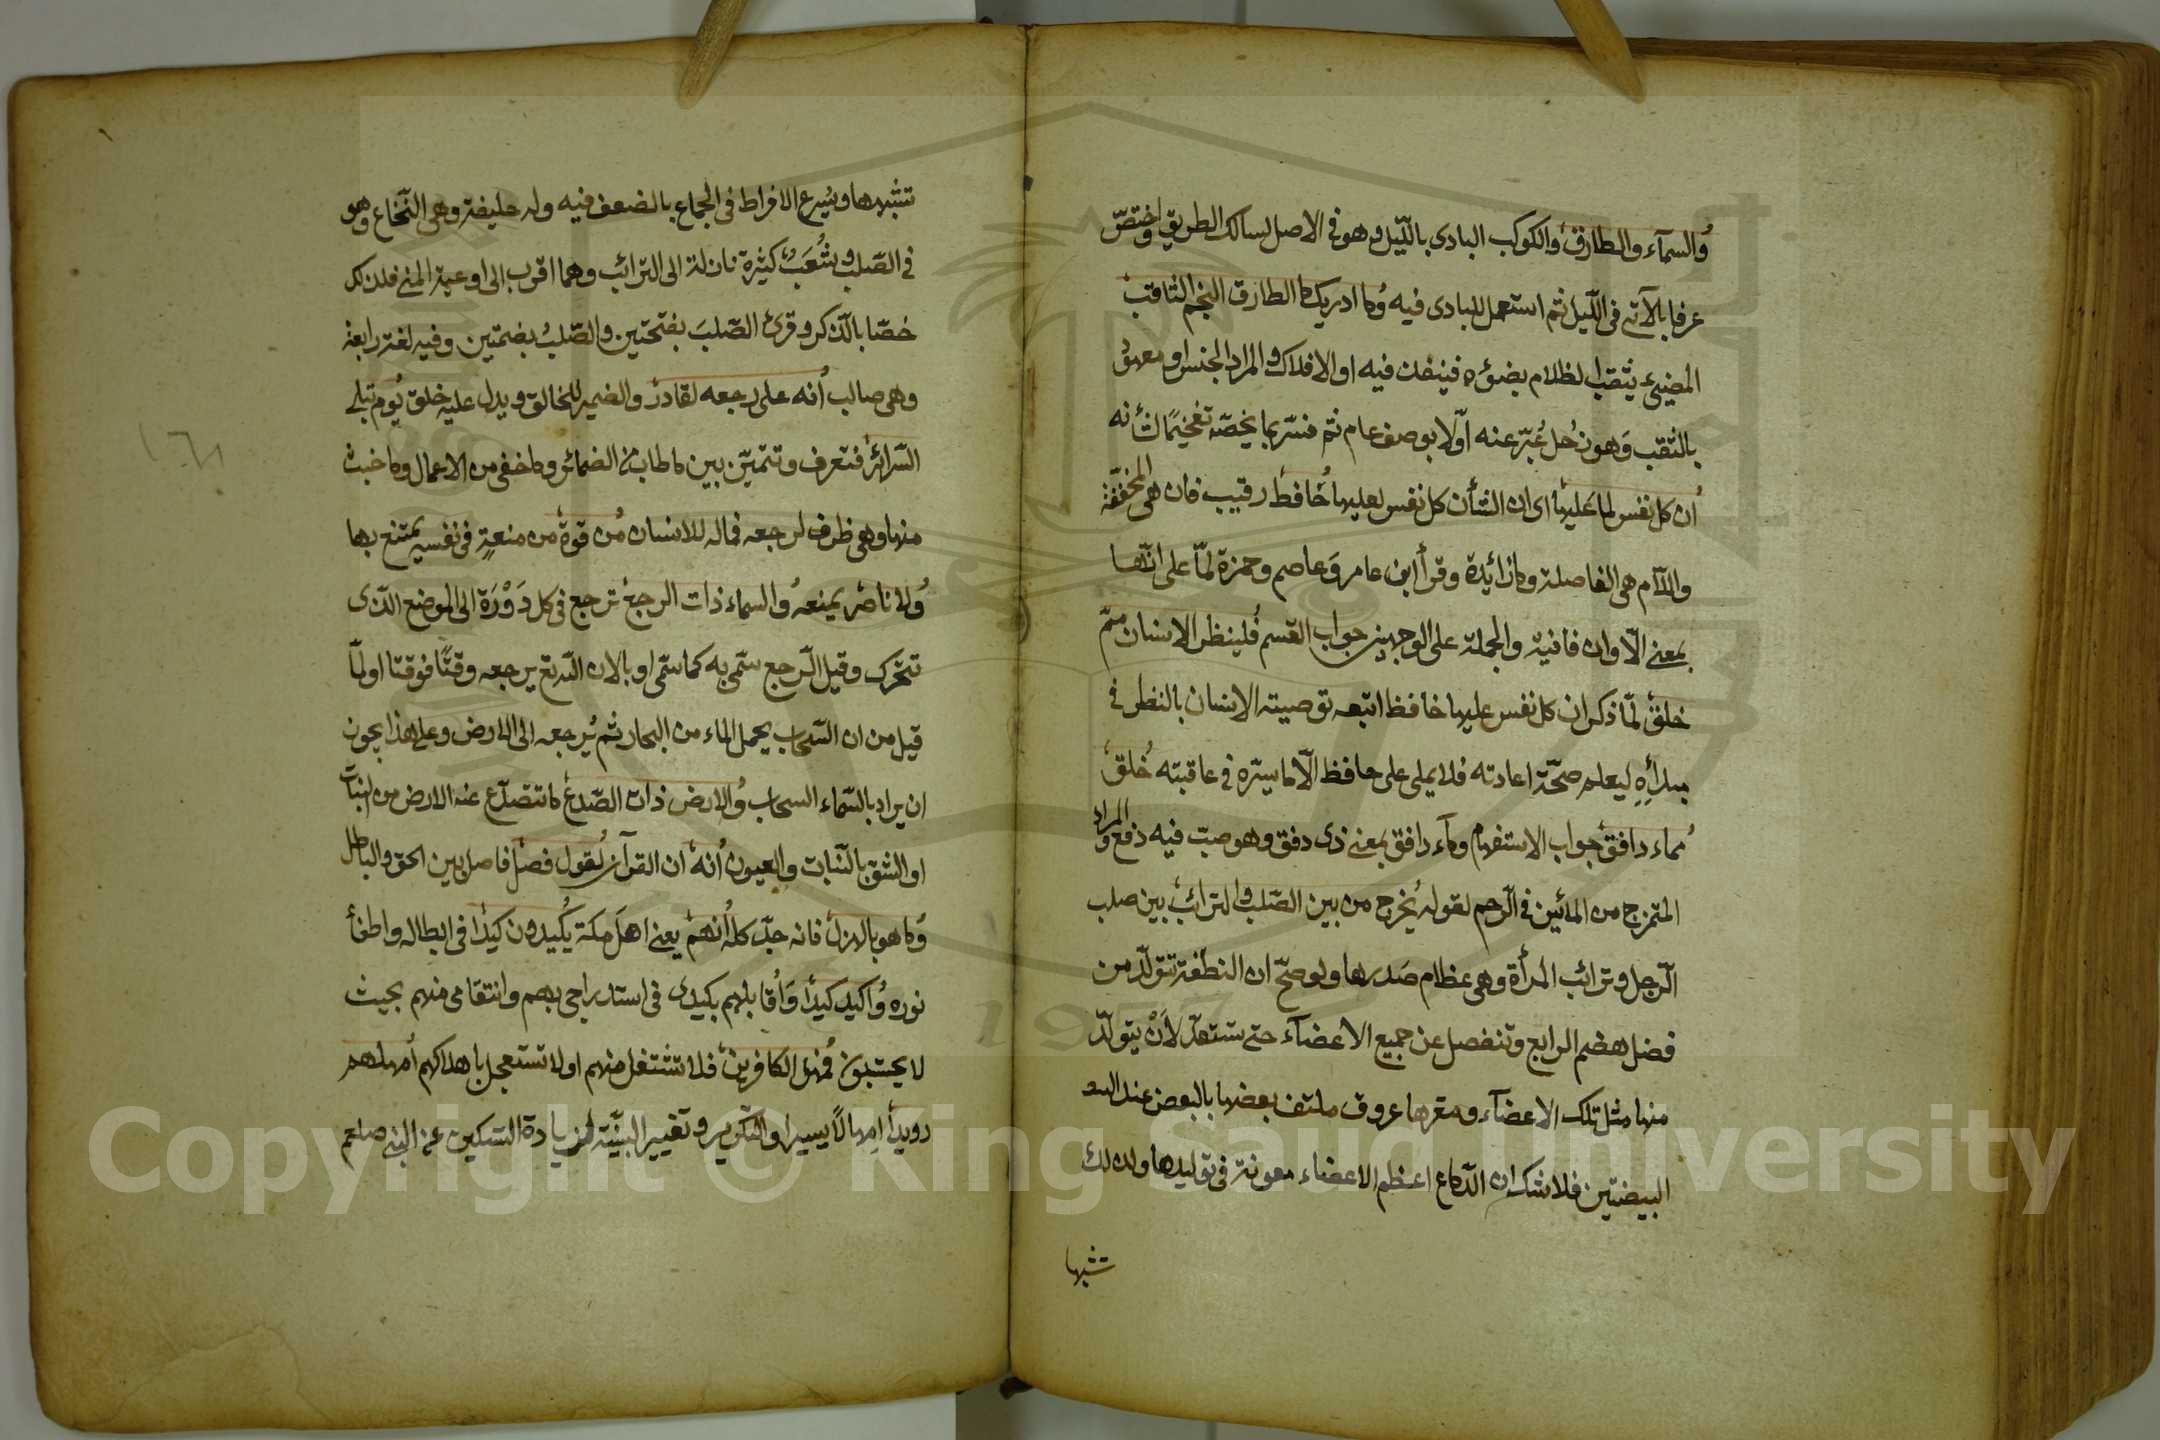 والسمآء والطارق والكوكب البادى بالليل وهو فى الاصل لسالك الطريق واختص
عرفا بالآتى فى الليل ثم استعمل للبادى فيه وما ادريك ما الطارق النجم الثاقب
المضيئ يثقب الظلام بضوئه فينفذ فيه او الافلاك والمراد الجنس او معهود
بالثقب وهو زحل عُبّر عنه اوّلا بوصف عام ثم فسّر بما يخصّه تفخيمًا لشأنه
ان كل نفس لما عليها اى ان الشأن كل نفس لعليها حافظ رقيب فان هى المخففة
واللام هى الفاصلة وما زائيدة وقرأ ابن عامر وعاصم وحمزة لمّا على انّها
بمعنى الّا وان نافية والجملة على الوجهين جواب القسم فلينظر الانسان ممّ
خلق لمّا ذكر ان كل نفس عليها حافظ اتبعه توصية الانسان بالنظر فى
مبدأِهِ ليعلم صحّة اعادته فلا يملى على حافظ الّا ما يسرّه فى عاقبته خُلق
من ماء دافق جواب الاستفهام وماء دافق بمعنى ذى دفق وهو صبّ فيه دفع والمراد
الممتزج من المائين فى الرّحم لقوله يخرج من بين الصّلب والترائب بين صلب
الرّجل وترائب المرأة وهى عظام صدرها ولو صحّ ان النطفة تتولّد من
فضل هضم الرابع وتنفصل عن جميع الاعضآء حتى تستعدّ لأَنْ يتولّد
منها مثل تلك الاعضآء ومقرها عروق ملتف بعضها بالبعض عند
البيضتين فلا شك ان الدّماغ اعظم الاعضاء معونة فى توليدها ولذلك
تشبها
تشبهها ويسرع الافراط فى الجماع بالضعف فيه وله خليفة وهى النّخاع وهو
فى الصّلب وشُعَبٌ كثيرة نازلة الى الترائب وهما اقرب الى اوعية المنى فلذلك
خصّا بالذكر وقرئ الصّلبَ بفتحتين والصّلبُ بضمتين وفيه لغة رابعة
وهى صالب انه على رجعه لقادر والضمير للخالق ويدل عليه خلق يوم تبلى
السّرائر فتعرف وتتميّز بين ما طاب من الضمائر وما خفى من الاعمال وما خبث
منها وهى ظرف لرجعه فماله للانسان من قوة من منعةٍ فى نفسه يمتنع بها
ولا ناصر يمنعه والسماء ذات الرجع ترجع فى كل دَوْرَة الى الموضع الذى
تتحرّك وقيل الرّجع سمّى به كما سمّى اوبا لان اللّه تع يرجعه وقتًا فوقتا او لما
قيل من ان السّحاب يحمل الماء من البحار ثم يُرجعه الى الارض وعلى هذا يجوز
ان يراد بالسّماء السحاب والارض ذات الصّدع ما تتصدّع عنه الارض من النبات
او الشق بالنّبات والعيون انه ان القرآن لقول فصل فاصل بين الحق والباطل
وما هو بالهزل فانه جدّ كله انهم يعنى اهل مكة يكيدون كيدا فى ابطاله واطفأ
نوره واكيد كيدا وَاُقابلهم بكيدى فى استدراجى بهم وانتقامى منهم بحيث
لا يحتسبون فمهل الكافرين فلا تشتغل منهم او لا تستعجل باهلاكهم أمهلهم
رويدا امهالاً يسيرا والتكرير وتغيير البنيّة لزيادة التسكين عن النبى صلعم